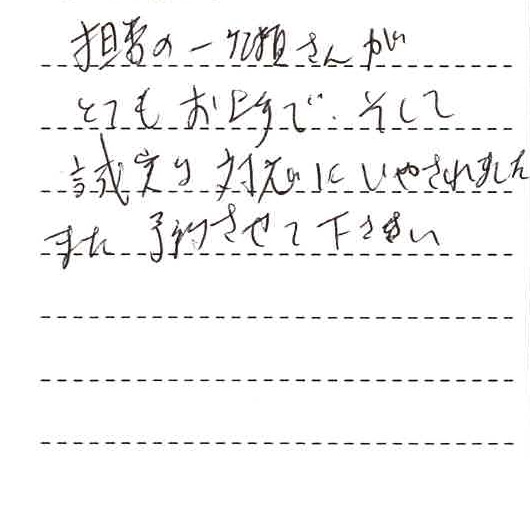 担当の一瀬さんが
とてもお上手で、そして
誠実な対応にいやされました
また予約させて下さい